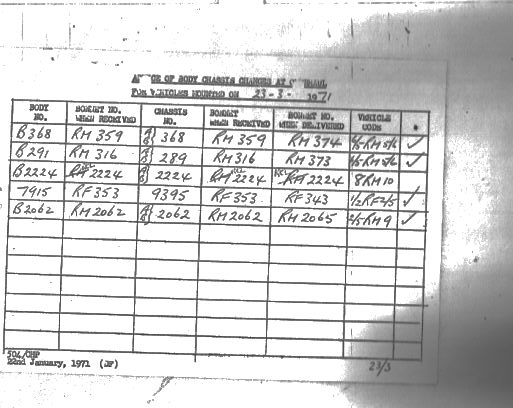 OF BODY CHASSIS CHANGES AT
FOR VEHICLES MOUNTED ON 23-3- 1971
BODY NO. BONNET NO. WHEN RECEIVED CHASSIS NO. BONNET WHEN RECEIVED BONNET NO. WHEN DELIVERED VEHICLE CODE *
B368 RM 359 368 RM 359 RM 374 RM 5/6 ✓
B291 RM 316 289 RM 316 RM 373 RM 5/6 ✓
B2224 2224 2224 2224 2224 8RM10
7915 RF 353 9395 RF 353 RF 343 1/2 RF 2/5 ✓
B2062 RM 2062 2062 RM 2062 RM 2065 2/5 RM 9 ✓
504/CHP
22nd January, 1971 (JF)
23/3